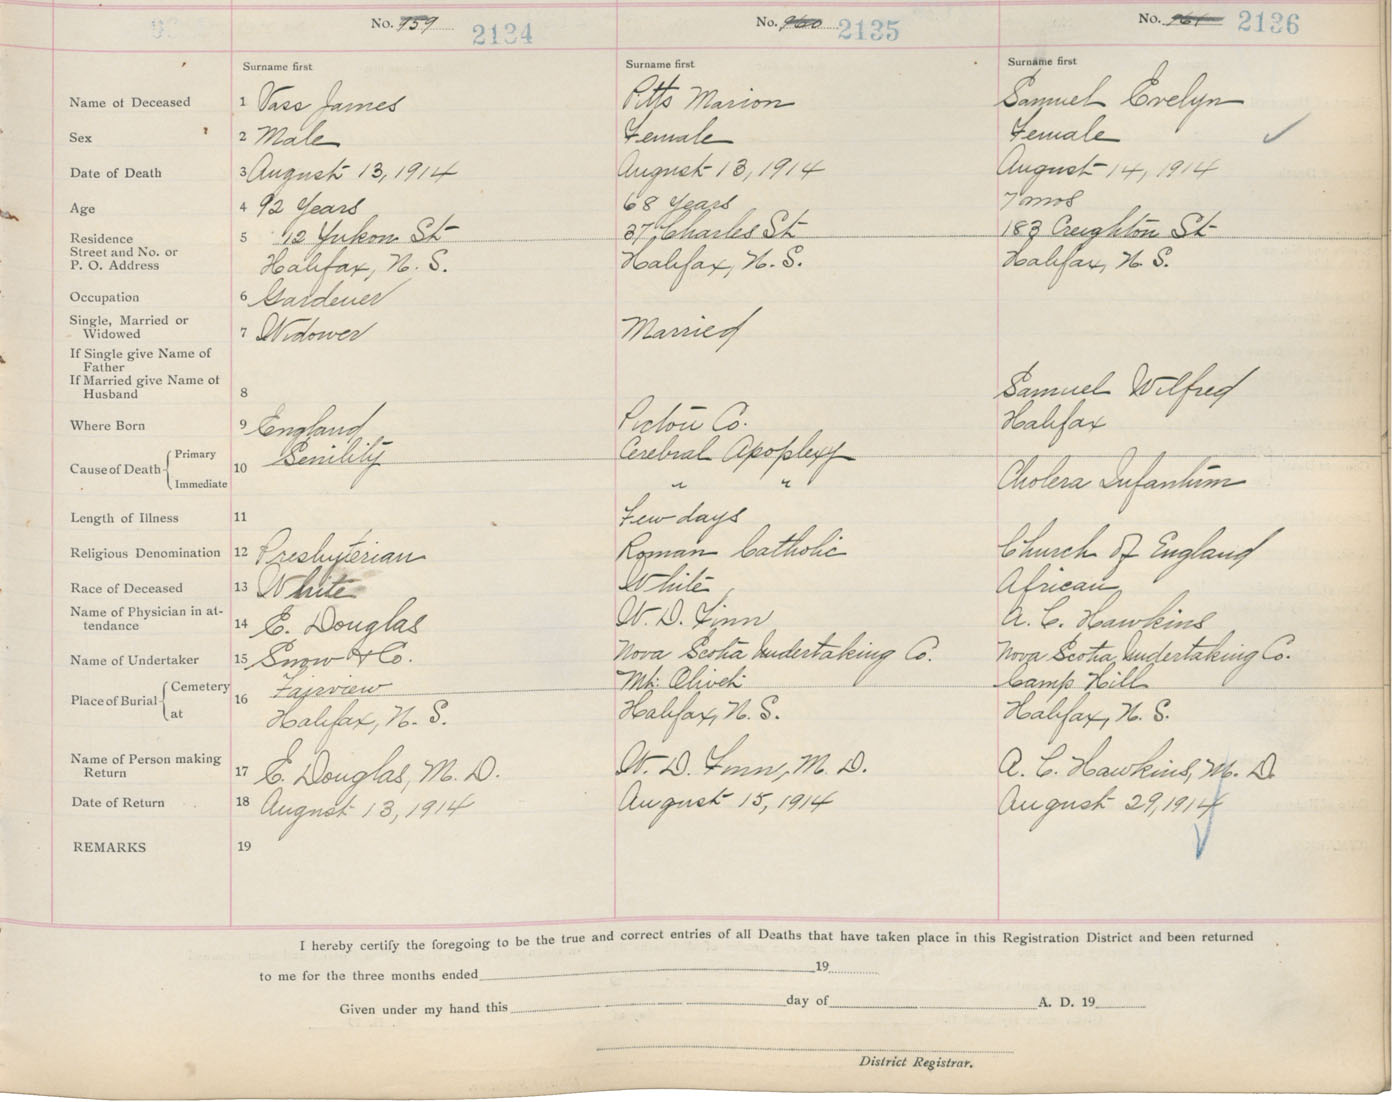 No. 959 2134 No. 960 2135 No. 961 2136
Surname first Surname first Surname first
Name of Deceased 1 Vass James Pitts Marion Samuel Evelyn
Sex 2 Male Female Female
Date of Death 3 August 13, 1914 August 13, 1914 August 14, 1914
Age 4 92 Years 68 Years 7 mos
Residence 5 12 Yukon St 37 Charles St 183 Creighton St
Street and No. or
P. O. Address Halifax, N. S. Halifax, N. S. Halifax, N. S.
Occupation 6 Gardener
Single, Married or
Widowed 7 Widower Married
If Single give Name of
Father
If Married give Name of
Husband 8 Samuel Wilfred
Where Born 9 England Pictou Co. Halifax
Cause of Death 10 Primary Senility Cerebral Apoplexy
Immediate " " Cholera Infantum
Length of Illness 11 Few days
Religious Denomination 12 Presbyterian Roman Catholic Church of England
Race of Deceased 13 White White African
Name of Physician in at-
tendance 14 E. Douglas W. D. Finn A. C. Hawkins
Name of Undertaker 15 Snow & Co. Nova Scotia Undertaking Co. Nova Scotia Undertaking Co.
Place of Burial 16 Cemetery Fairview Mt. Olivet Camp Hill
at Halifax, N. S. Halifax, N. S. Halifax, N. S.
Name of Person making
Return 17 E. Douglas, M. D. W. D. Finn, M. D. A. C. Hawkins, M. D.
Date of Return 18 August 13, 1914 August 15, 1914 August 29, 1914
REMARKS 19
I hereby certify the foregoing to be the true and correct entries of all Deaths that have taken place in this Registration District and been returned
to me for the three months ended 19
Given under my hand this day of A. D. 19
District Registrar.